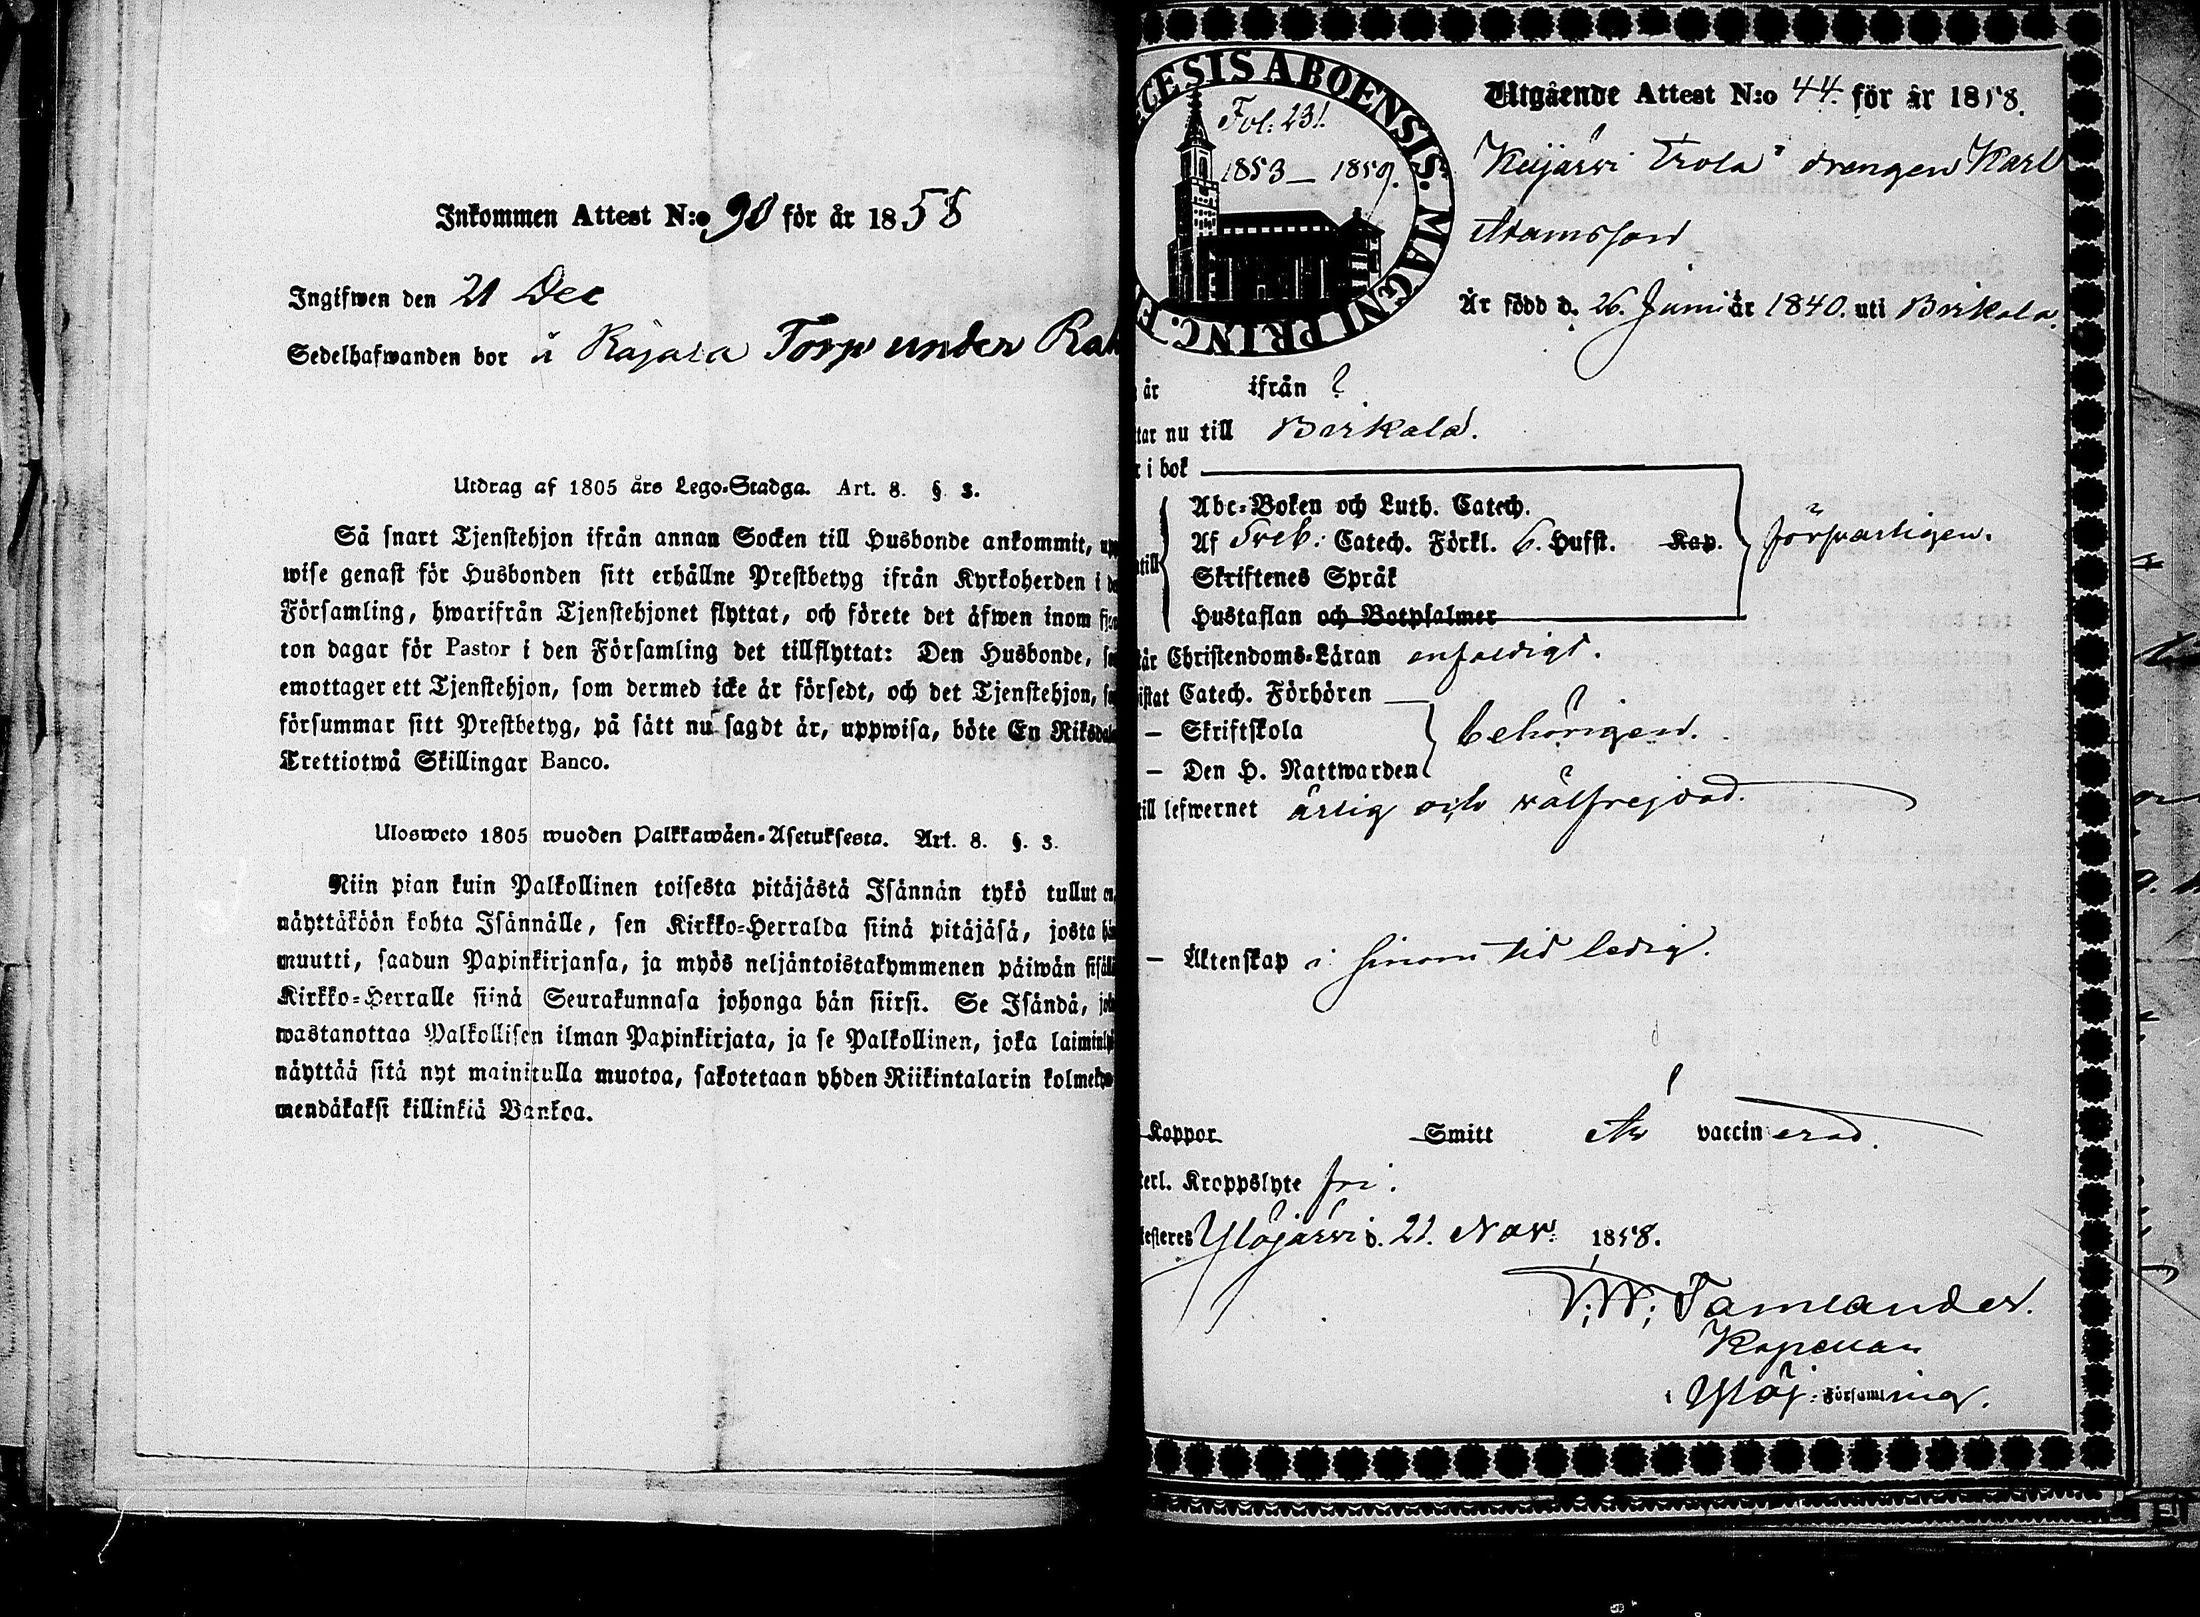 Inkommen Attest N:o 90 för år 1858
Ingifwen den 21 Dec
Sedelhafwanden bor å Rajala Torp under
Utdrag af 1805 års Lego-Stadga. Art. 8. §. 3.
Så snart Tjenstehjon ifrån annan Socken till Husbonde ankommit,
wise genast för Husbonden sitt erhållne Prestbetyg ifrån Kyrkoherden i
Församling, hwarifrån Tjenstehjonet flyttat, och förete det äfwen inom
ton dagar för Pastor i den Församling det tillflyttat: Den Husbonde,
emottager ett Tjenstehjon, som dermed icke är försedt, och det Tjenstehjon,
försummar sitt Prestbetyg, på sätt nu sagdt är, uppwisa, böte En
Trettiotwå Skillingar Banco.
Ulosweto 1805 wuoden Palkkawäen-Asetuksesta. Art. 8. §. 3.
Niin pian kuin Palkollinen toisesta pitäjästä Isännän tykö tullut
näyttäköön kohta Isännälle, sen Kirkko-Herralda siinä pitäjäsä, josta
muutti, saadun Papinkirjansa, ja myös neljäntoistakymmenen päiwän
Kirkko-Herralle siinä Seurakunnasa johonga hän siirsi. Se Isändä,
wastanottaa Palkollisen ilman Papinkirjata, ja se Palkollinen, joka
näyttää sitä nyt mainitulla muotoa, sakotetaan yhden Riikintalarin
mendäkaksi killinkiä Bankoa.
CESIS ABOENSIS. MAGNI PRINC. F
Fol: 231.
1853–1859.
Utgående Attest N:o 44. för år 1858.
Keijärvi drengen Karl
Adamsson
Är född d. 26. Juni år 1840. uti Birkala.
år ifrån ?
tar nu till Birkala.
i bok
Abc-Boken och Luth. Catech.
Af Sveb: Catech. Förkl. 6. Hufst. Kap.
Skriftenes Språk
Hustaflan och Botpsalmer
försvarligen.
Christendoms-Läran enfaldigt.
Catech. Förhören
– Skriftskola
– Den H. Nattwarden
behörigen.
till lefwernet ärlig och wälfrejdad.
– Äktenskap i hinom tid ledig.
Koppor Smitt Är vaccinerad.
terl. Kroppslyte fri.
Ylöjärvi d. 21. Nov. 1858.
Kapellan
i Ylöj: Församling.